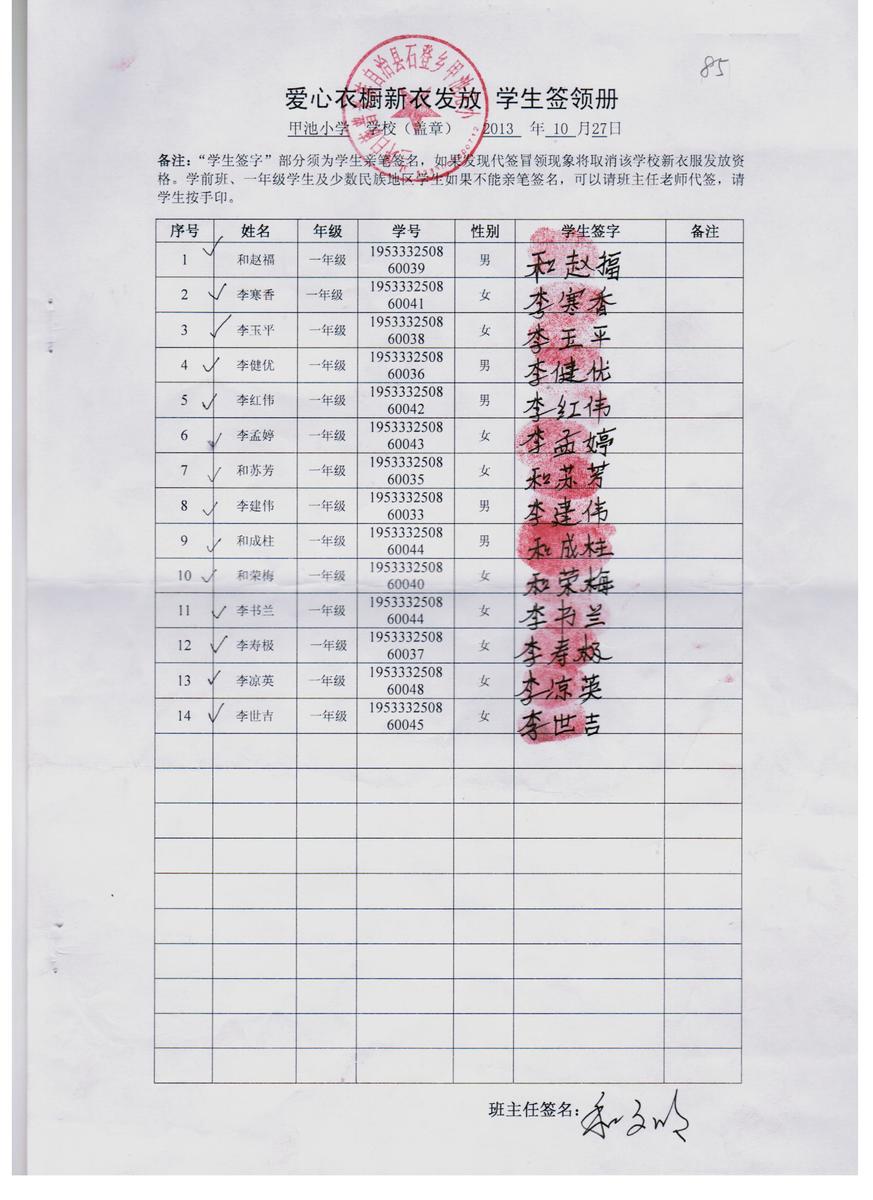 85
爱心衣橱新衣发放 学生签领册
甲池小学 学校（盖章） 2013 年 10 月27日
备注：“学生签字”部分须为学生亲笔签名，如果发现代签冒领现象将取消该学校新衣服发放资
格。学前班、一年级学生及少数民族地区学生如果不能亲笔签名，可以请班主任老师代签，请
学生按手印。
序号 姓名 年级 学号 性别 学生签字 备注
1 和赵福 一年级 1953332508 60039 男 和赵福
2 李寒香 一年级 1953332508 60041 女 李寒香
3 李玉平 一年级 1953332508 60038 女 李玉平
4 李健优 一年级 1953332508 60036 男 李健优
5 李红伟 一年级 1953332508 60042 男 李红伟
6 李孟婷 一年级 1953332508 60043 女 李孟婷
7 和苏芳 一年级 1953332508 60035 女 和苏芳
8 李建伟 一年级 1953332508 60033 男 李建伟
9 和成柱 一年级 1953332508 60044 男 和成柱
10 和荣梅 一年级 1953332508 60040 女 和荣梅
11 李书兰 一年级 1953332508 60044 女 李书兰
12 李寿极 一年级 1953332508 60037 女 李寿极
13 李凉英 一年级 1953332508 60048 女 李凉英
14 李世吉 一年级 1953332508 60045 女 李世吉
班主任签名：和文明